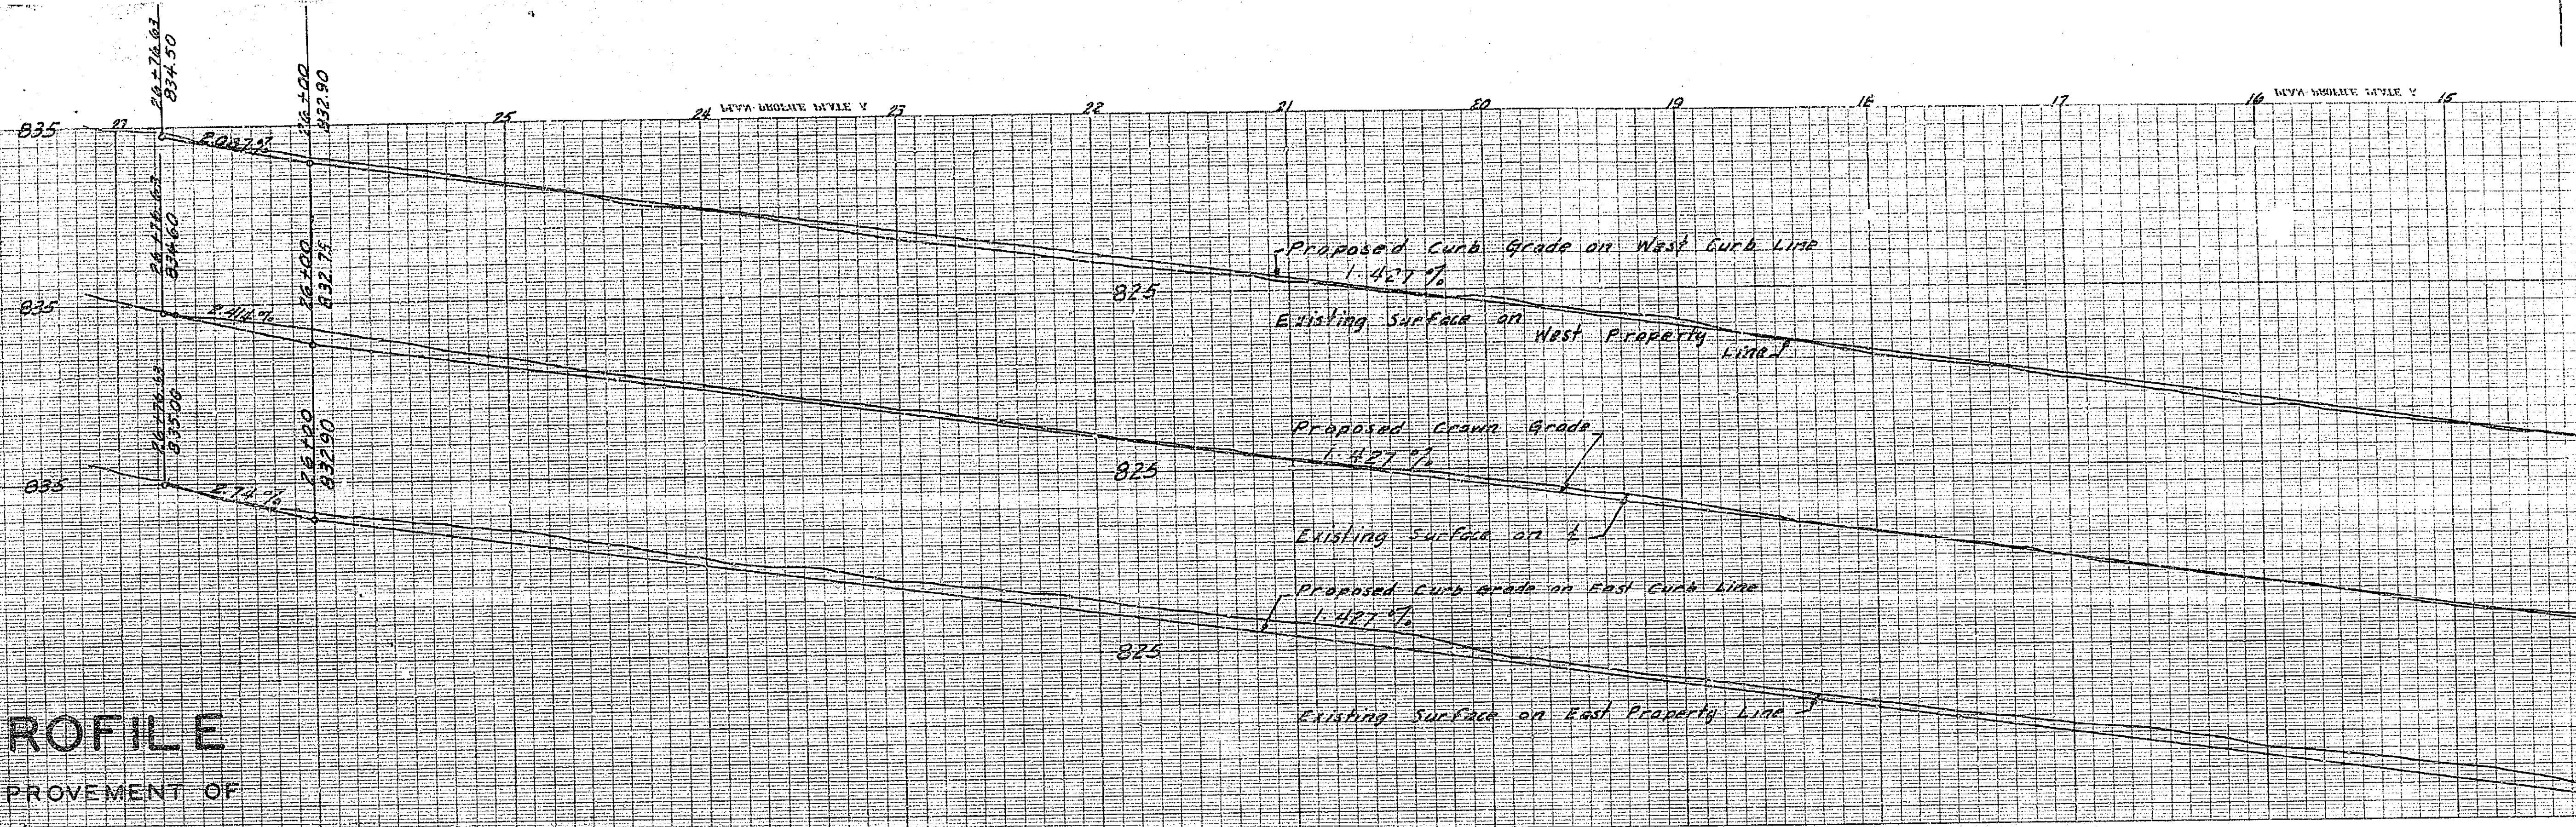 26+76.63
834.50
26+00
832.90
27 25 24 23 22 21 20 19 18 17 16 15
PLAN-PROFILE PLATE
PLAN-PROFILE PLATE
835
2.087%
26+76.63
834.60
26+00
832.75
Proposed Curb Grade on West Curb Line
1.427%
825
Existing Surface on
West Property
Line
835
2.414%
26+76.63
835.00
26+00
832.90
Proposed Crown Grade
1.427%
825
Existing Surface on ℄
835
2.74%
Proposed Curb Grade on East Curb Line
1.427%
825
Existing Surface on East Property Line
ROFILE
PROVEMENT OF